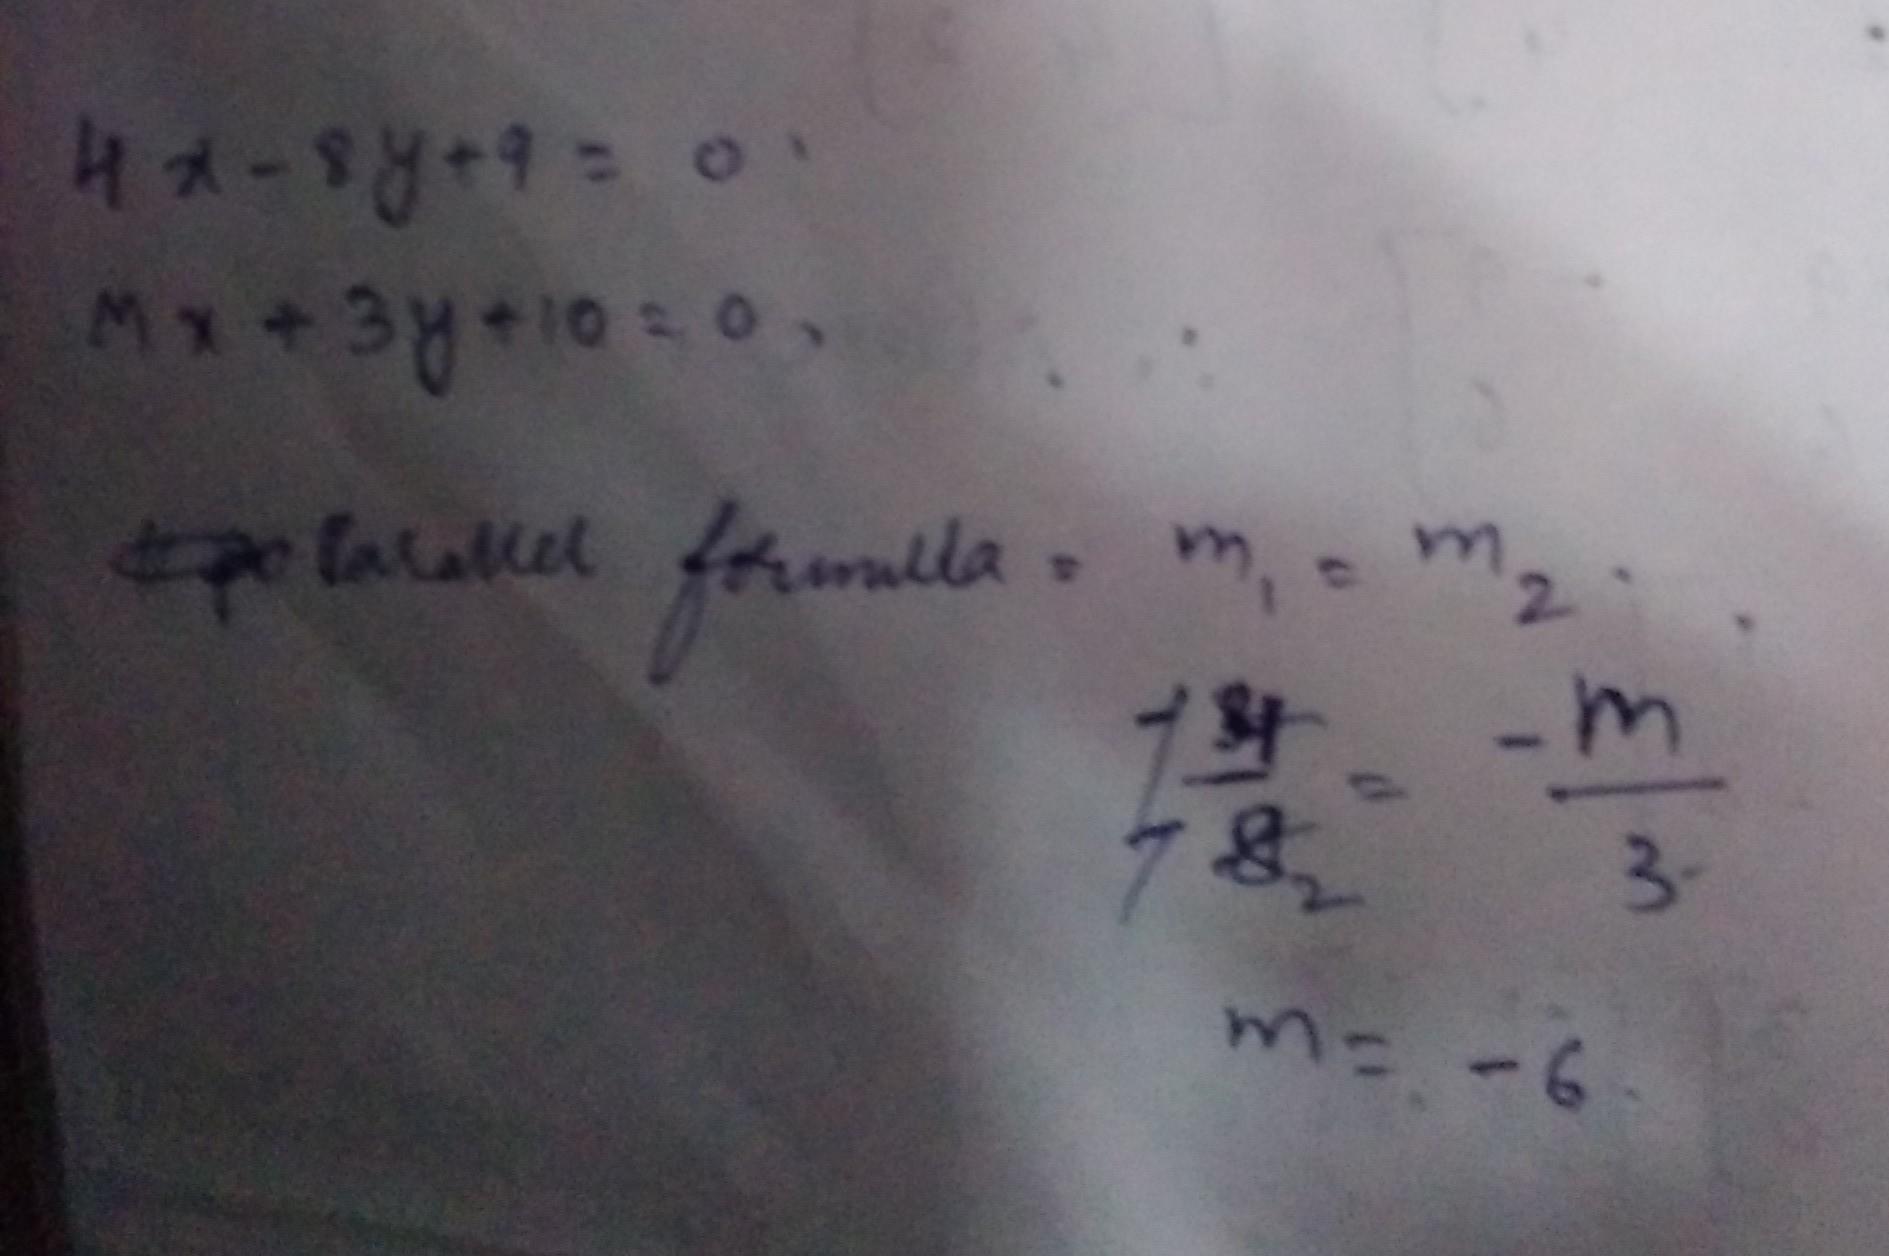 4x - 8y + 9 = 0
Mx + 3y + 10 = 0
Parallel formulla = m₁ = m₂
-4/-8 2 = -m/3
m = -6